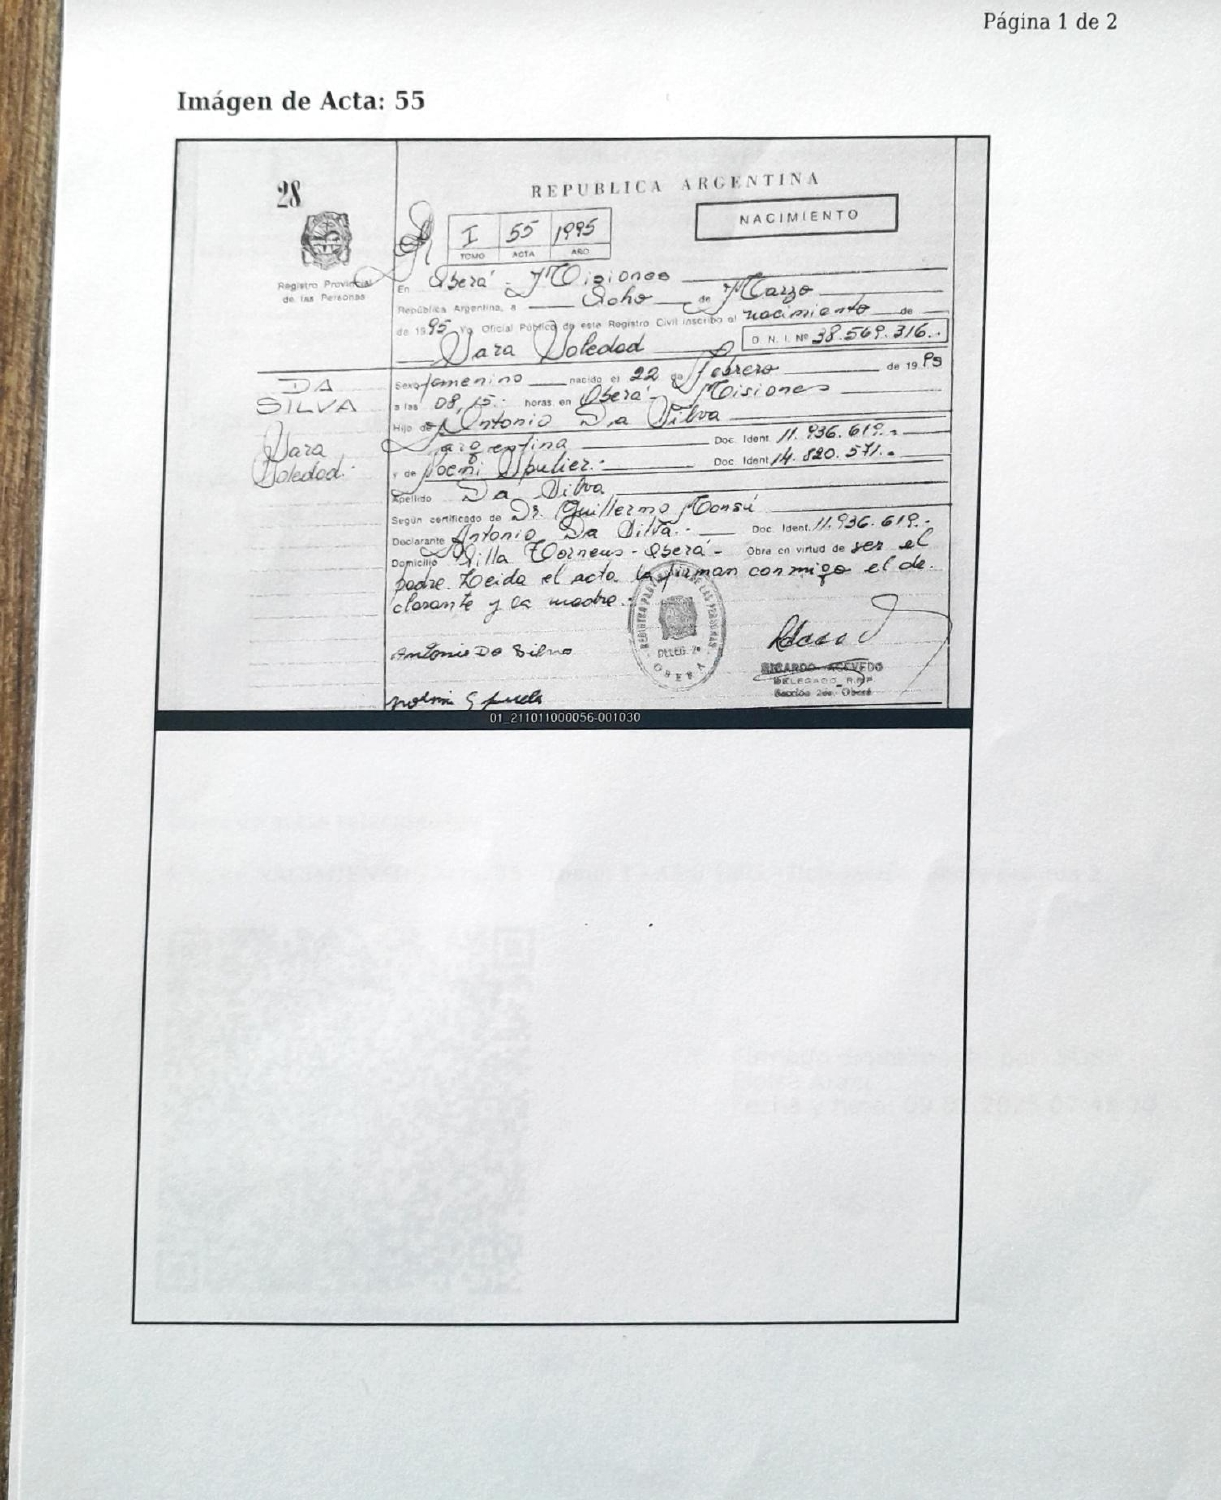 Página 1 de 2
Imágen de Acta: 55
28
REPUBLICA ARGENTINA
NACIMIENTO
I 55 1995
TOMO ACTA AÑO
Registro Provincial
de las Personas
En Oberá - Misiones
República Argentina, a Ocho de Marzo
de 1995 Yo Oficial Público de este Registro Civil inscribo el nacimiento de
Sara Soledad D. N. I. Nº 38.569.316.-
DA
SILVA
Sara
Soledad.-
Sexo femenino nacido el 22 de febrero de 19 95
a las 08,15.- horas, en Oberá - Misiones
Hijo de Antonio Da Silva
argentina Doc. Ident. 11.936.619.-
y de Noemi Spulier.- Doc. Ident. 14.820.571.-
Apellido Da Silva
Según certificado de Dr. Guillermo
Declarante Antonio Da Silva.- Doc. Ident. 11.936.619.-
Domicilio Villa - Oberá - Obra en virtud de ser el
padre. Leída el acta la firman conmigo el de-
clarante y la madre.-
REGISTRO PROVINCIAL DE LAS PERSONAS
DELEG. 2ª
OBERA
Antonio Da Silva
RICARDO ACEVEDO
DELEGADO R.P.P
Sección 2da. Oberá
01_211011000056-001030